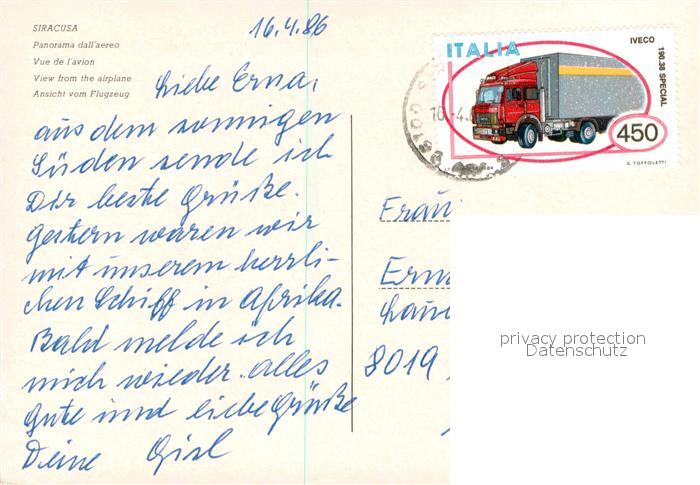 SIRACUSA
Panorama dall'aereo
Vue de l'avion
View from the airplane
Ansicht vom Flugzeug
16.4.86
Liebe Erna,
aus dem sonnigen
Süden sende ich
Dir beste Grüße.
Gestern waren wir
mit unserem herrli-
chen Schiff in Afrika.
Bald melde ich
mich wieder. alles
Gute und liebe Grüße
Deine Gisl
ITALIA
IVECO
190.38 SPECIAL
450
G. TOFFOLETTI
Frau
Erna
8019
privacy protection
Datenschutz